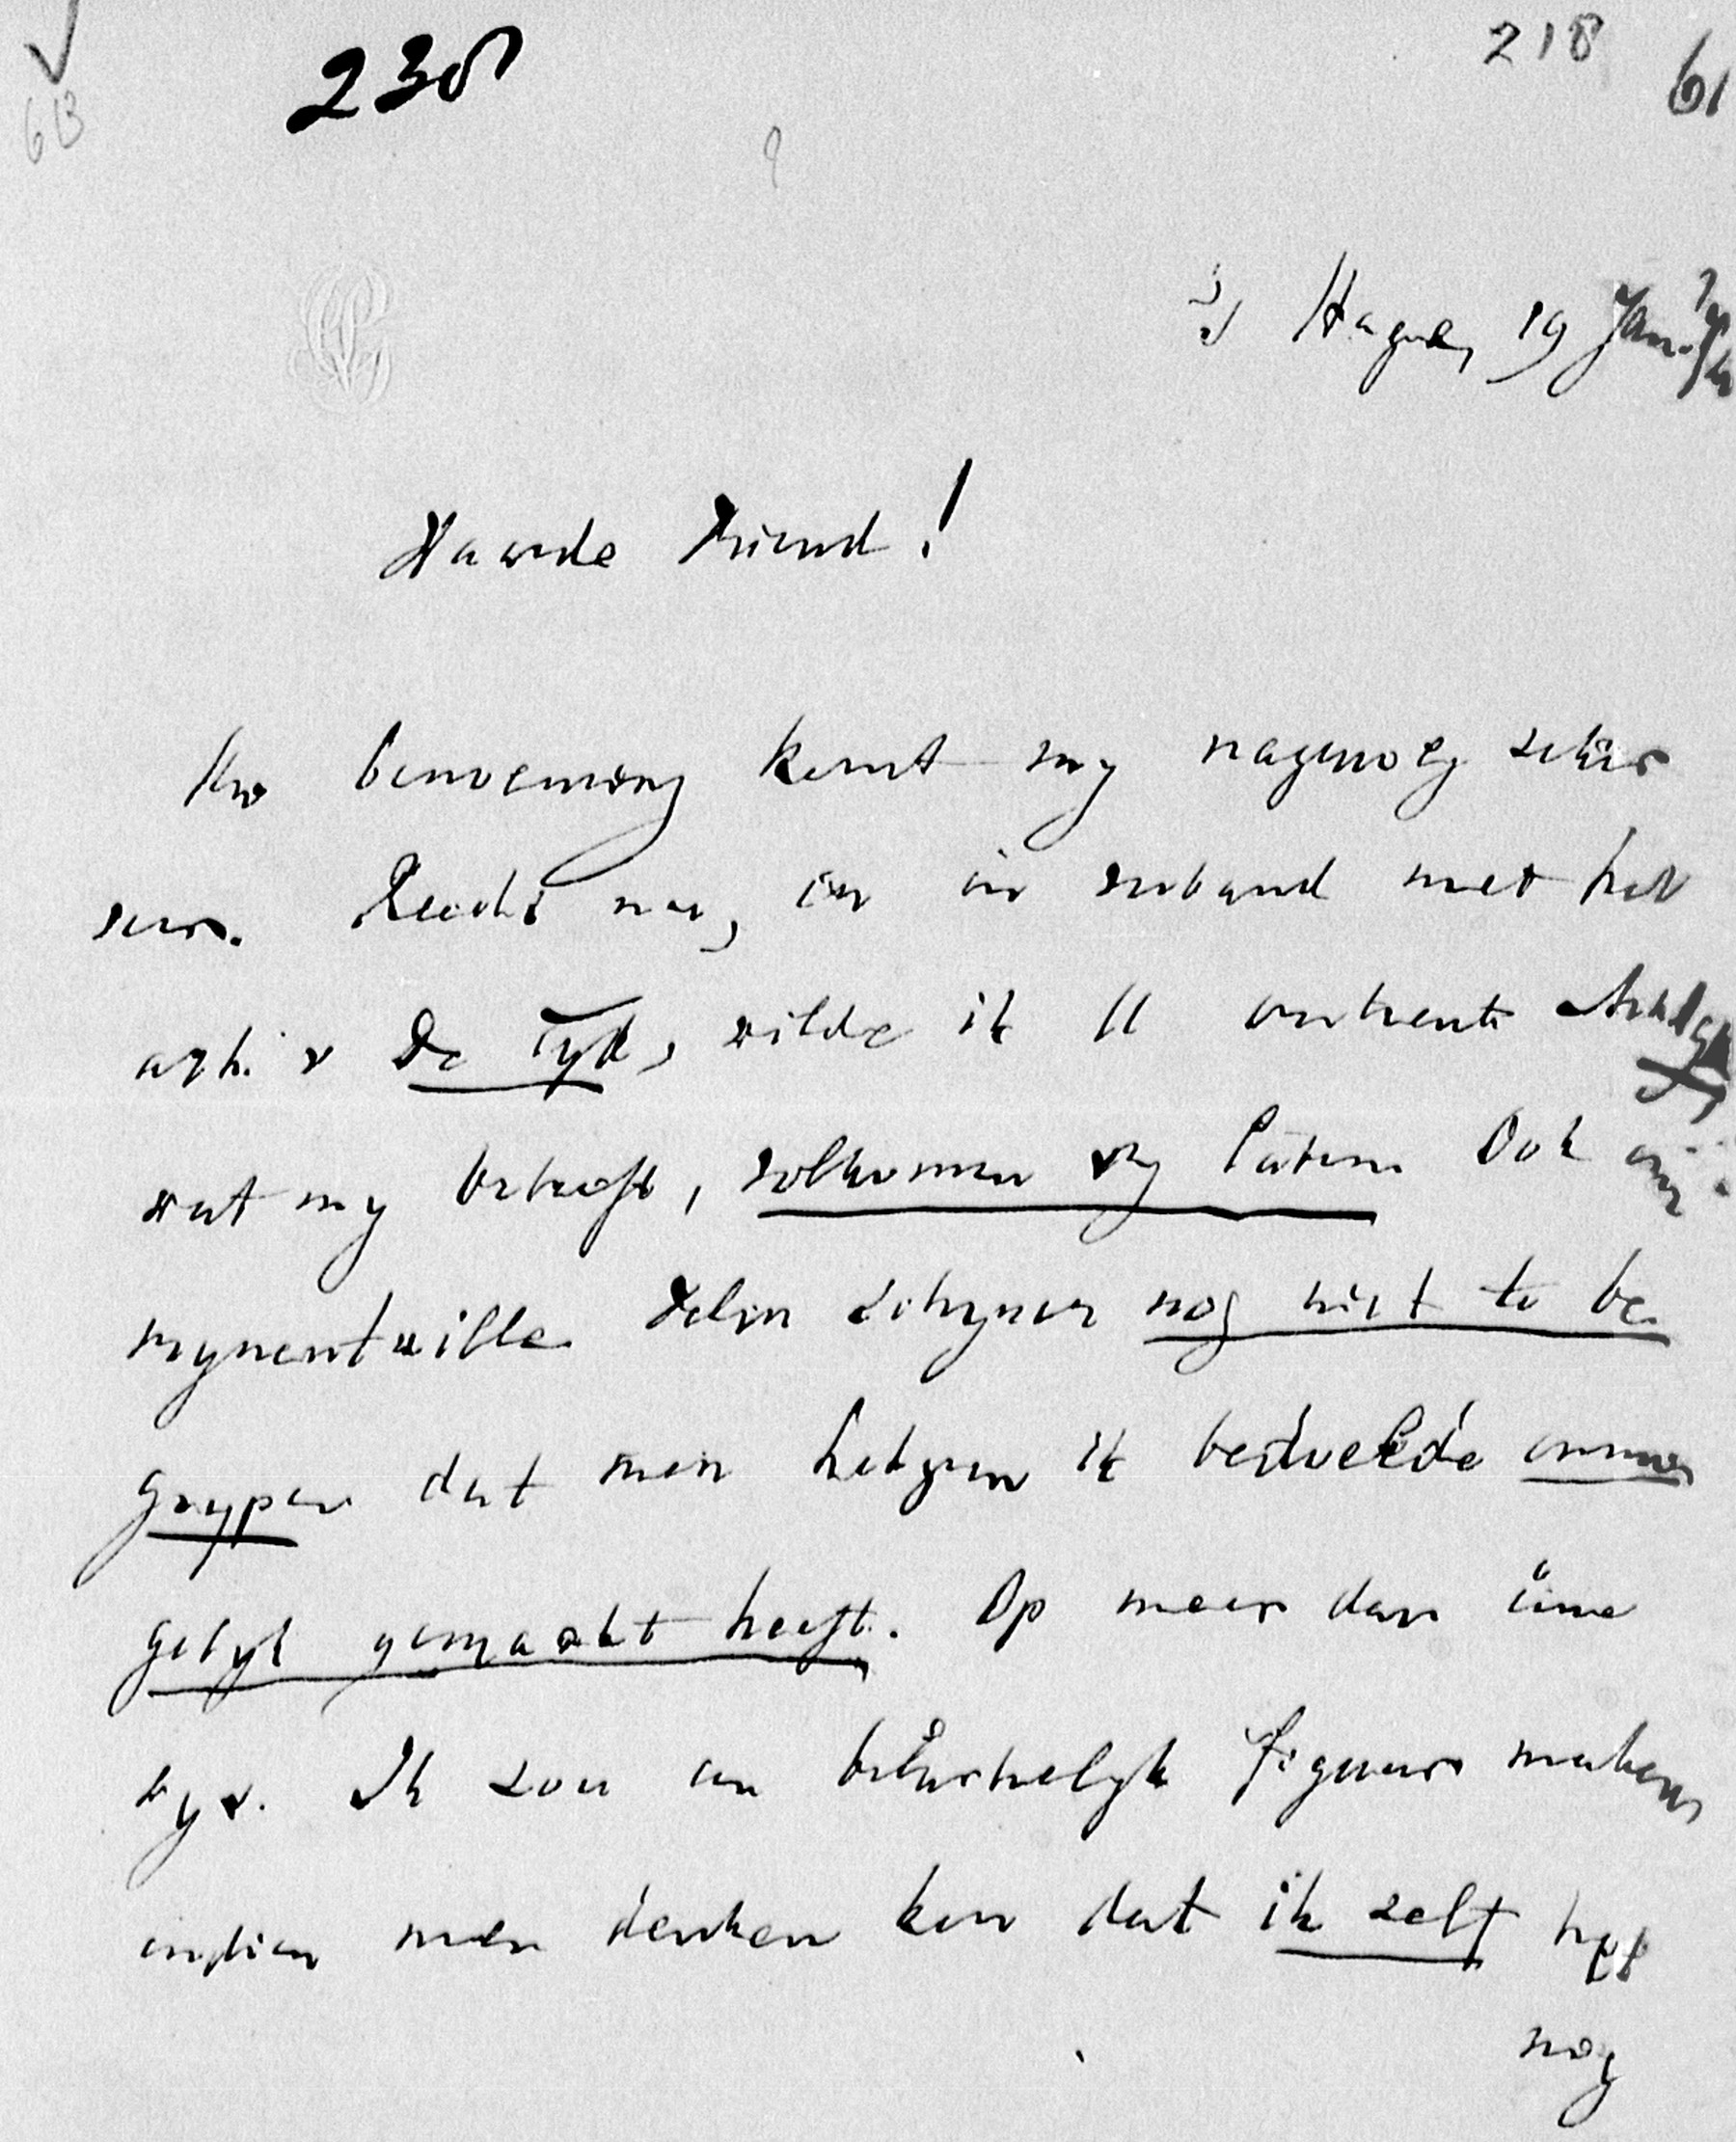 238
218
61
63
's Hage, 19 Jan.
Waarde Vriend!
Uw benoeming komt my nagenoeg zeker
voor. Reeds nu, en in verband met het
art. v De Tyd, wilde ik U omtrent
wat my betreft, volkomen vry laten. Ook om
mynentwille. Velen schynen nog niet te be-
grypen dat men hetgeen ik bedoelde onmo
gelyk gemaakt heeft. Op meer dan eene
wys. Ik zou een belachelyk figuur maken,
indien men denken kon dat ik zelf het
nog